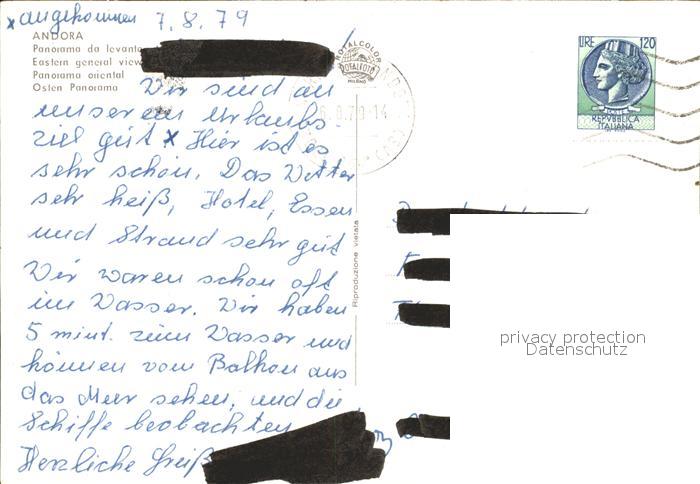 x angekommen 7.8.79
ANDORA
Panorama da levante
Eastern general view
Panorama oriental
Osten Panorama
ROTALCOLOR
ROTALFOTO
MILANO
LIRE 120
REPVBBLICA
ITALIANA
Wir sind an
unserem Urlaubs
ziel gut x Hier ist es
sehr schön. Das Wetter
sehr heiß, Hotel, Essen
und Strand sehr gut
Wir waren schon oft
im Wasser. Wir haben
5 mint. zum Wasser und
können vom Balkon aus
das Meer sehen, und die
Schiffe beobachten
Herzliche Grüß
Riproduzione vietata
privacy protection
Datenschutz